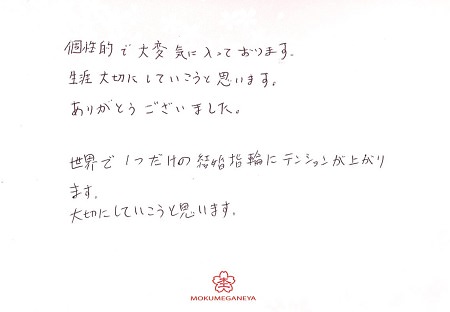 個性的で大変気に入っております。
生涯大切にしていこうと思います。
ありがとうございました。
世界で1つだけの結婚指輪にテンションが上がり
ます。
大切にしていこうと思います。
MOKUMEGANEYA